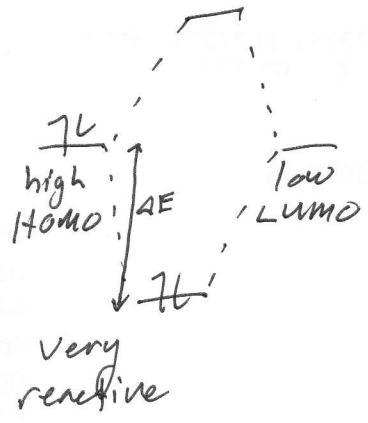 high
HOMO
ΔE
low
LUMO
very
reactive